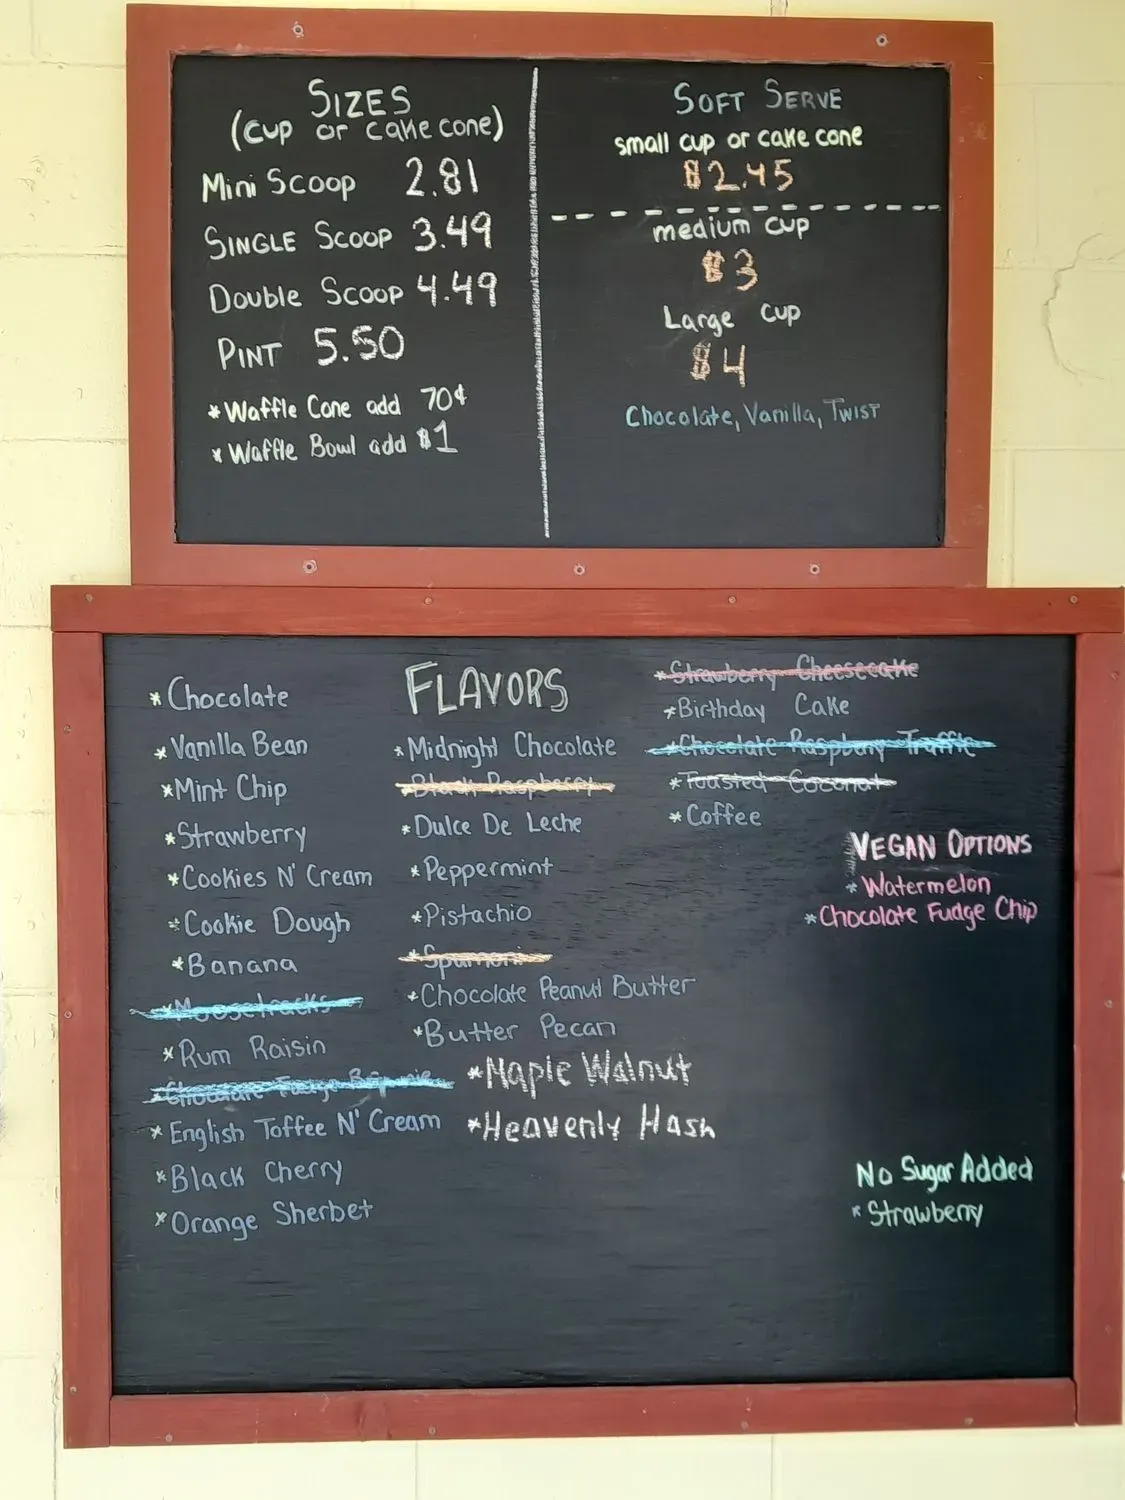 SIZES
(cup or cake cone)
Mini Scoop 2.81
SINGLE SCOOP 3.49
Double Scoop 4.49
PINT 5.50
*Waffle Cone add 70¢
*Waffle Bowl add $1
SOFT SERVE
small cup or cake cone
$2.45
medium cup
$3
Large cup
$4
Chocolate, Vanilla, TWIST
FLAVORS
*Chocolate
*Vanilla Bean
*Mint Chip
*Strawberry
*Cookies N' Cream
*Cookie Dough
*Banana
*Moosetracks
*Rum Raisin
*Chocolate Fudge Brownie
*English Toffee N' Cream
*Black Cherry
*Orange Sherbet
*Midnight Chocolate
*Black Raspberry
*Dulce De Leche
*Peppermint
*Pistachio
*Spumoni
*Chocolate Peanut Butter
*Butter Pecan
*Maple Walnut
*Heavenly Hash
*Strawberry Cheesecake
*Birthday Cake
*Chocolate Raspberry Truffle
*Toasted Coconut
*Coffee
VEGAN OPTIONS
*Watermelon
*Chocolate Fudge Chip
No Sugar Added
*Strawberry